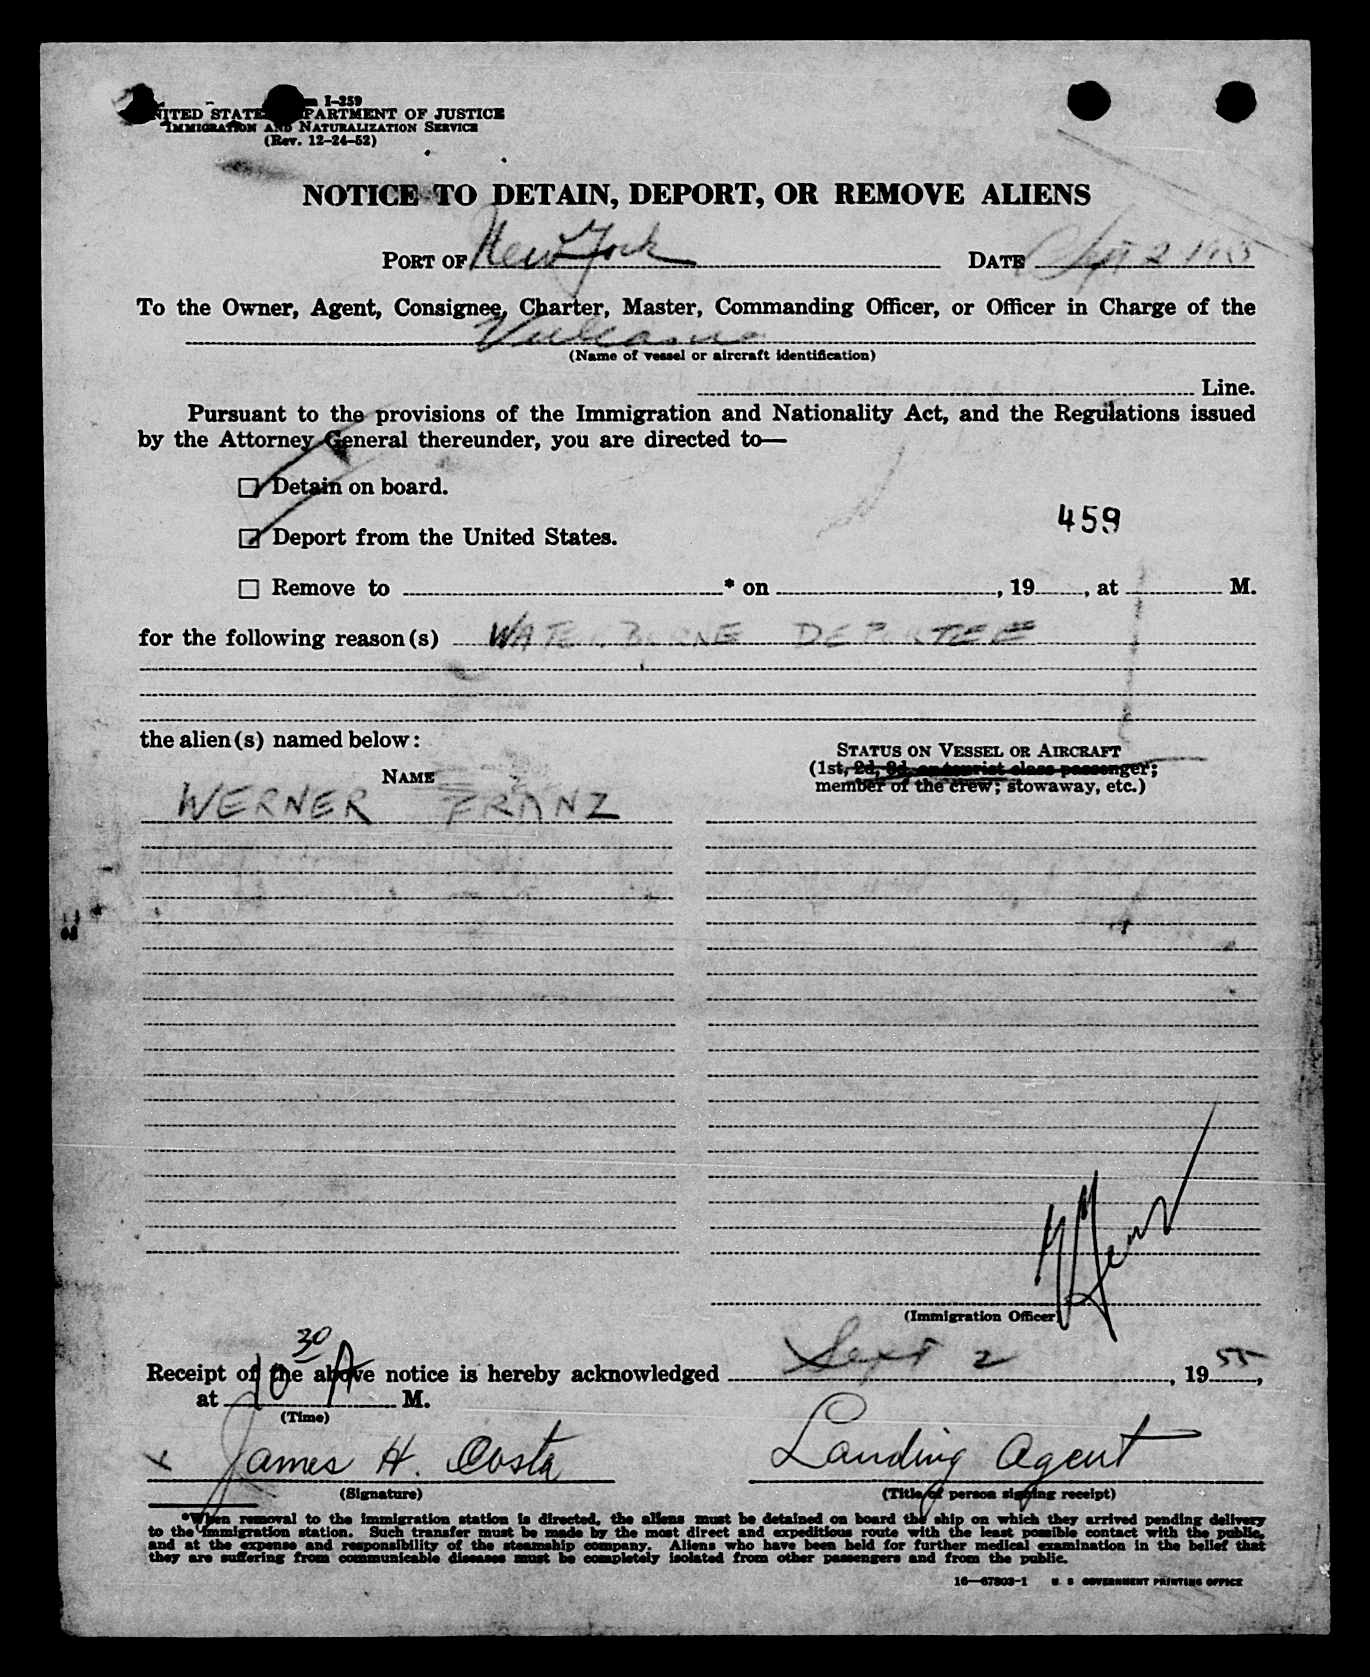 I-259
UNITED STATES DEPARTMENT OF JUSTICE
IMMIGRATION AND NATURALIZATION SERVICE
(Rev. 12-24-52)
NOTICE TO DETAIN, DEPORT, OR REMOVE ALIENS
PORT OF New York DATE Sept 2 1955
To the Owner, Agent, Consignee, Charter, Master, Commanding Officer, or Officer in Charge of the
Vulcania
(Name of vessel or aircraft identification)
Line.
Pursuant to the provisions of the Immigration and Nationality Act, and the Regulations issued
by the Attorney General thereunder, you are directed to—
☐ Detain on board.
☐ Deport from the United States.
459
☐ Remove to * on , 19 , at M.
for the following reason(s) WATERBORNE DEPORTEE
the alien(s) named below:
STATUS ON VESSEL OR AIRCRAFT
NAME
(1st, 2d, 3d, or tourist class passenger;
member of the crew; stowaway, etc.)
WERNER FRANZ
(Immigration Officer)
Receipt of the above notice is hereby acknowledged Sept 2, 1955,
at 10 30 A M.
(Time)
x James H. Costa Landing Agent
(Signature) (Title of person signing receipt)
*When removal to the immigration station is directed, the aliens must be detained on board the ship on which they arrived pending delivery
to the immigration station. Such transfer must be made by the most direct and expeditious route with the least possible contact with the public,
and at the expense and responsibility of the steamship company. Aliens who have been held for further medical examination in the belief that
they are suffering from communicable diseases must be completely isolated from other passengers and from the public.
16—67803-1 U. S. GOVERNMENT PRINTING OFFICE